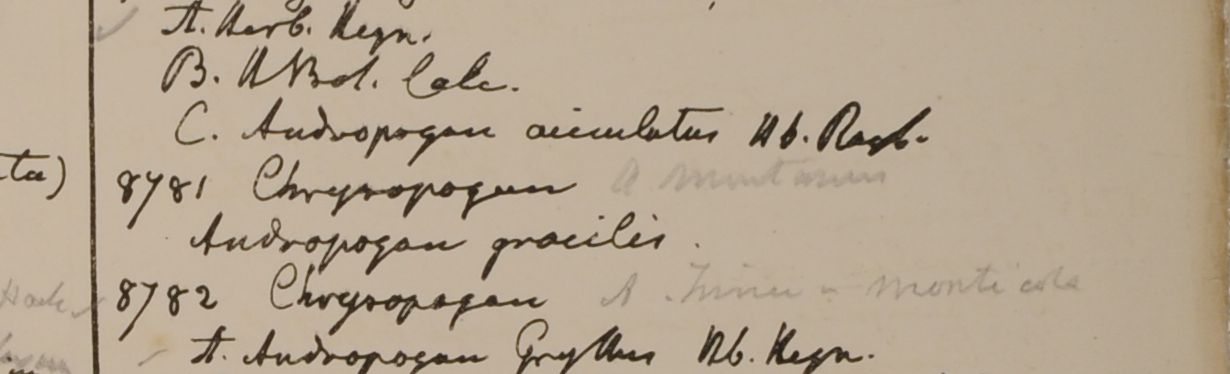 A. Herb. Heyn.
B. HBot. Calc.
C. Andropogon aciculatus Hb. Roxb.
ta) 8781 Chrysopogon A montanus
Andropogon gracilis.
Hack. 8782 Chrysopogon A. Trinii = monticola
A. Andropogon Gryllus Hb. Heyn.